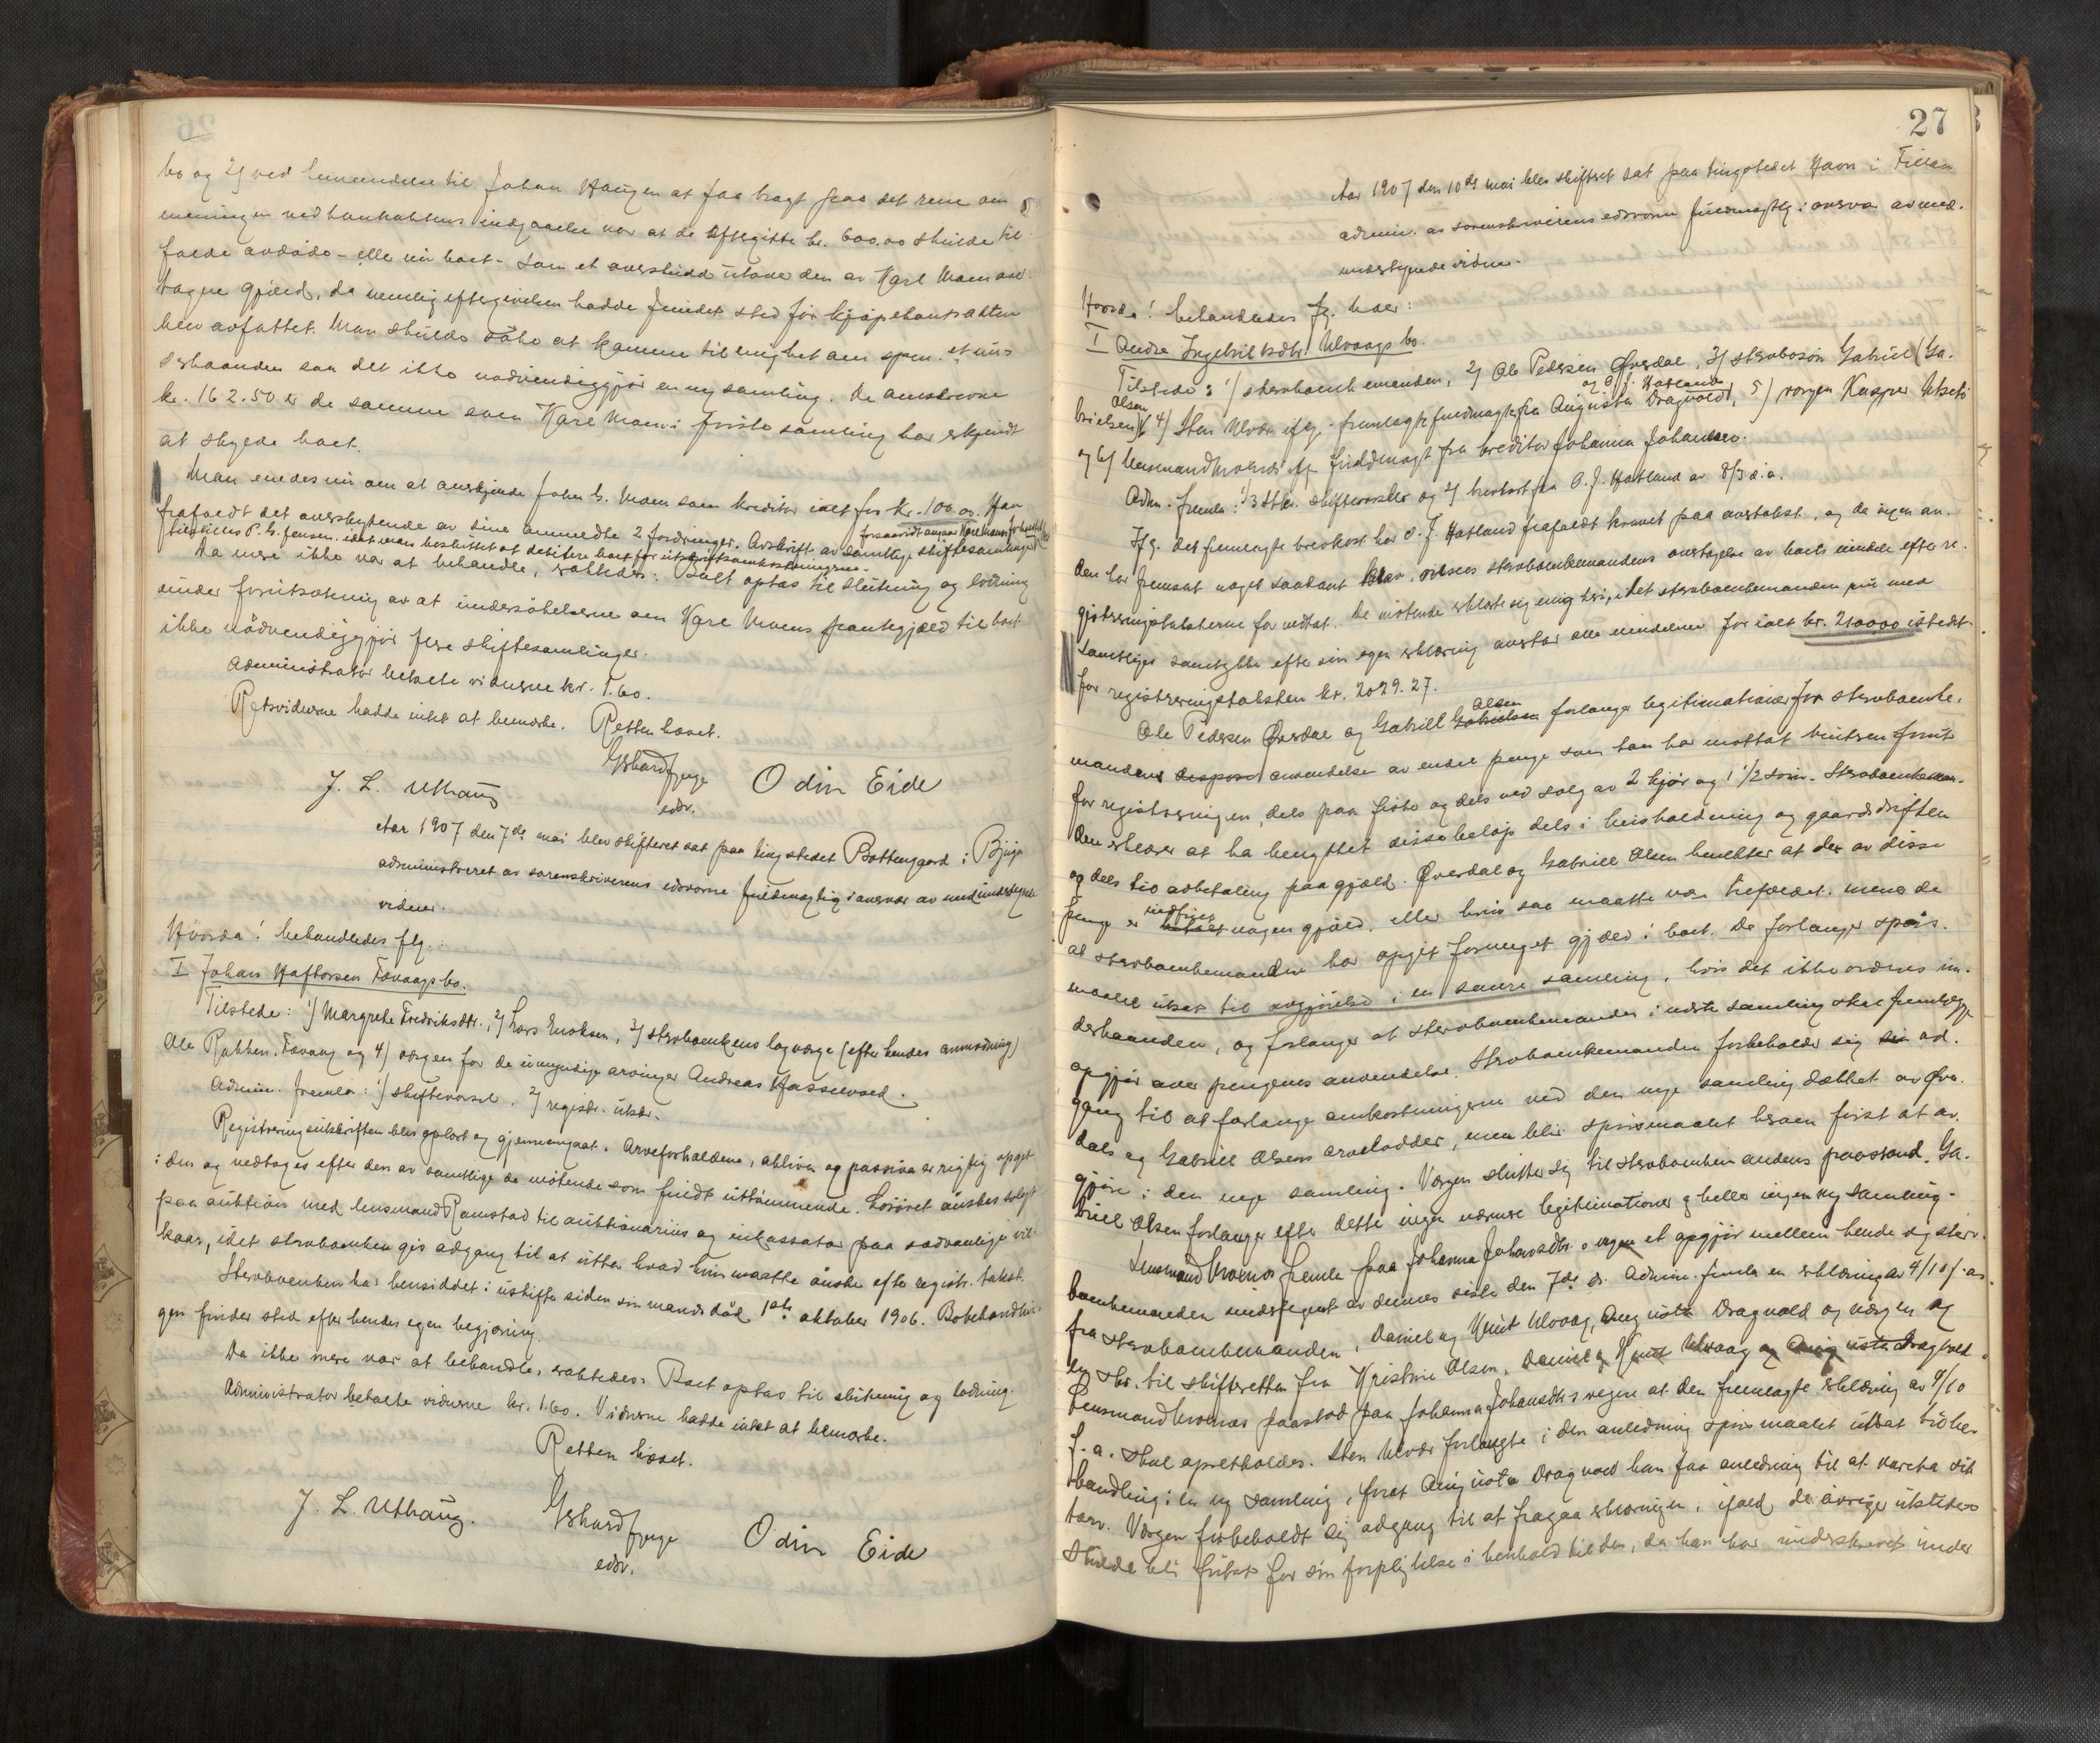 bo og 2) ved henvendelse til Johan Haugen at faa bragt paa det rene om
meningen ved kontraktens indgaaelse var at de eftergitte kr. 600.00 skulde til-
falde avdøde - eller nu boet - som et overskudd utover den av Karl Moen over-
tagne gjæld, da nemlig eftergivelsen hadde fundet sted før kjøpekontrakten
blev avfattet. Man skulde søke at komme til enighet om spm. et un-
derhaanden saa det ikke nødvendiggjør en ny samling. De omskrevne
kr. 162.50 er de samme som Karl Moen i første samling har erkjendt
at skylde boet.
Man enedes nu om at anerkjende John L. Moen som kreditor ialt for kr. 100.00. Han
frafaldt det overskytende av sine anmeldte 2 fordringer. Avskrift av samtlige skiftesamlinger
forsaavidt angaar Karl Moens forhold
tilstilles P. L. Jensen, idet man besluttet at debitere boet for utskriftsomkostningerne.
Da mere ikke var at behandle, sattedes: Boet optas til slutning og lodning
under forutsætning av at undersøkelserne om Karl Moens pantegjæld til boet
ikke nødvendiggjør flere skiftesamlinger.
Administrator betalte vidnerne kr. 1.60.
Retsvidnerne hadde intet at bemerke. Retten hævet.
J. L. Uthaug
edsv.
Odin Eide
Aar 1907 den 7de mai blev skifteret sat paa tingstedet Bottengaard i Bjugn
administreret av sorenskriverens edsvorne fuldmægtig i overvær av medundertegnede
vidner.
Hvorda! behandledes flg.:
I Johan Haftorsen Tovaags bo.
Tilstede: 1) Margrethe Fredriksdtr., 2) Lars Enoksen, 3) skrboenkens lagværge (efter hendes anmodning)
Ole Rokken. Tovaag og 4) værgen for de umyndige arvinger Andreas Hassevold.
Admin. fremla: 1) skiftevarsel. 2) registr. utskr.
Registreringsutskriften blev oplæst og gjennemgaat. Arveforholdene, aktiva og passiva er rigtig opgit
i den og vedtages efter den av samtlige de møtende som fuldt uttømmende. Løsøret ønskes solgt
paa auktion med lensmand Ramstad til auktionarius og inkassator paa sædvanlige vil-
kaar, idet skrboenken gis adgang til at utta hvad hun maatte ønske efter registr. takst.
Skrboenken har hensiddet i uskiftet siden sin mands død 1ste oktober 1906. Bobehandlin-
gen finder sted efter hendes egen begjæring.
Da ikke mere var at behandle, sattedes: Boet optas til slutning og lodning.
Administrator betalte vidnerne kr. 1.60. Vidnerne hadde intet at bemerke.
Retten hævet.
J. L. Uthaug.
edsv.
Odin Eide
27
Aar 1907 den 10de mai blev skifteret sat paa tingstedet Havn i Fillan
admin. av sorenskriverens edsvorne fuldmægtig i overvær av med-
undertegnede vidner.
Hvorda! behandledes flg. boer:
I Andrea Ingebrigtsdtr. Ulvaags bo.
Tilstede: 1) skrboenkemanden, 2) Ole Pedersen Øverdal, 3) skrbosøn Gabriel (Ga-
og O. J. Hatland
brielsen) Olsen, 4) Sten Ulvær iflg. fremlagte fuldmagter fra Augusta Dragvold, 5) værgen Kasper Utseti
og 6) lensmand Moenes iflg. fuldmagt fra kreditor Johanna Johansen.
Adm. fremla: 1) 3 stkr. skiftevarsler og 2) brevkort fra O. J. Hatland av 8/3 d.a.
Iflg. det fremlagte brevkort har O. J. Hatland frafaldt kravet paa overtakst, og da ingen an-
den har fremsat noget saadant krav, ansees skrboenkemandens overtagelse av boets eiendele efter re-
gistreringstaksterne for vedtat. De møtende erklærte sig enig heri, idet skrboenkemanden nu med
samtliges samtykke efter sin egen erklæring overtar alle eiendelene for ialt kr. 2100.00 istedet-
for registreringstaksten kr. 2029.27.
Ole Pedersen Øverdal og Gabriel Gabrielsen Olsen forlanger legitimationer for skrboenke-
mandens anvendelse av endel penge som han har mottat vinteren forut
for registreringen, dels paa fiske og dels ved salg av 2 kjør og 1 1/2 svin. Skrboenkeman-
den erklærer at ha benyttet disse beløp dels i husholdning og gaardsdriften
og dels til avbetaling paa gjæld. Øverdal og Gabriel Olsen benekter at der av disse
penge er betalt nedbragt nogen gjæld, eller hvis saa maatte være tilfældet, mener de
at skrboenkemanden har opgit formeget gjæld i boet. De forlanger spørs-
maalet utsat til avgjørelse i en senere samling, hvis det ikke ordnes un-
derhaanden, og forlanger at skrboenkemanden i næste samling skal fremlægge
opgjør over pengenes anvendelse. Skrboenkemanden forbeholder sig ad-
gang til at forlange omkostningerne ved den nye samling dækket av Øver-
dals og Gabriel Olsens arvelodder, men blir spørsmaalet herom først at av-
gjøre i den nye samling. Værgen slutter sig til skrboenkemandens paastand. Ga-
briel Olsen forlanger efter dette ingen nærmere legitimationer og heller ingen ny samling.
Lensmand Moenes fremla paa Johanna Johansdtr.s vegne et opgjør mellem hende og skrbo-
enkemanden undertegnet av dennes siste den 7de ds. Admin. fremla en erklæring av 4/10 f.a.
fra skrboenkemanden, Daniel og Knut Ulvaag, Augusta Dragvold og værgen og
en skr. til skifteretten fra Kristine Olsen, Daniel og Knut Ulvaag og Augusta Dragvold.
Lensmand Moenes paastod paa Johanna Johansdtr.s vegne at den fremlagte erklæring av 4/10
f.a. skal opretholdes. Sten Ulvær forlangte i den anledning spørsmaalet utsat til be-
handling i en ny samling, forat Augusta Dragvold kan faa anledning til at vareta sit
tarv. Værgen forbeholdt sig adgang til at fragaa erklæringen, ifald de øvrige utstedere
skulde bli fritat for sin forpligtelse i henhold til den, da han har underskrevet under